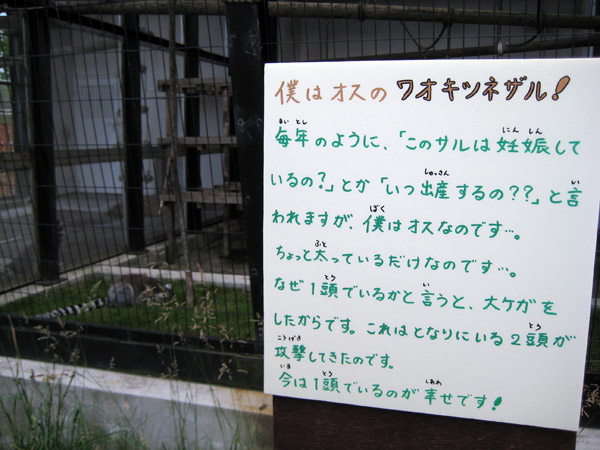 僕はオスのワオキツネザル!
毎年のように、「このサルは妊娠して
いるの?」とか「いつ出産するの??」と言
われますが、僕はオスなのです…。
ちょっと太っているだけなのです…。
なぜ1頭でいるかと言うと、大ケガを
したからです。これはとなりにいる2頭が
攻撃してきたのです。
今は1頭でいるのが幸せです!